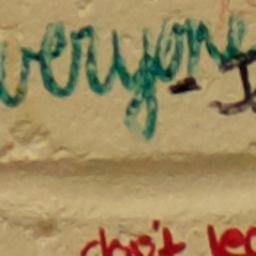 veryone
- I
don't